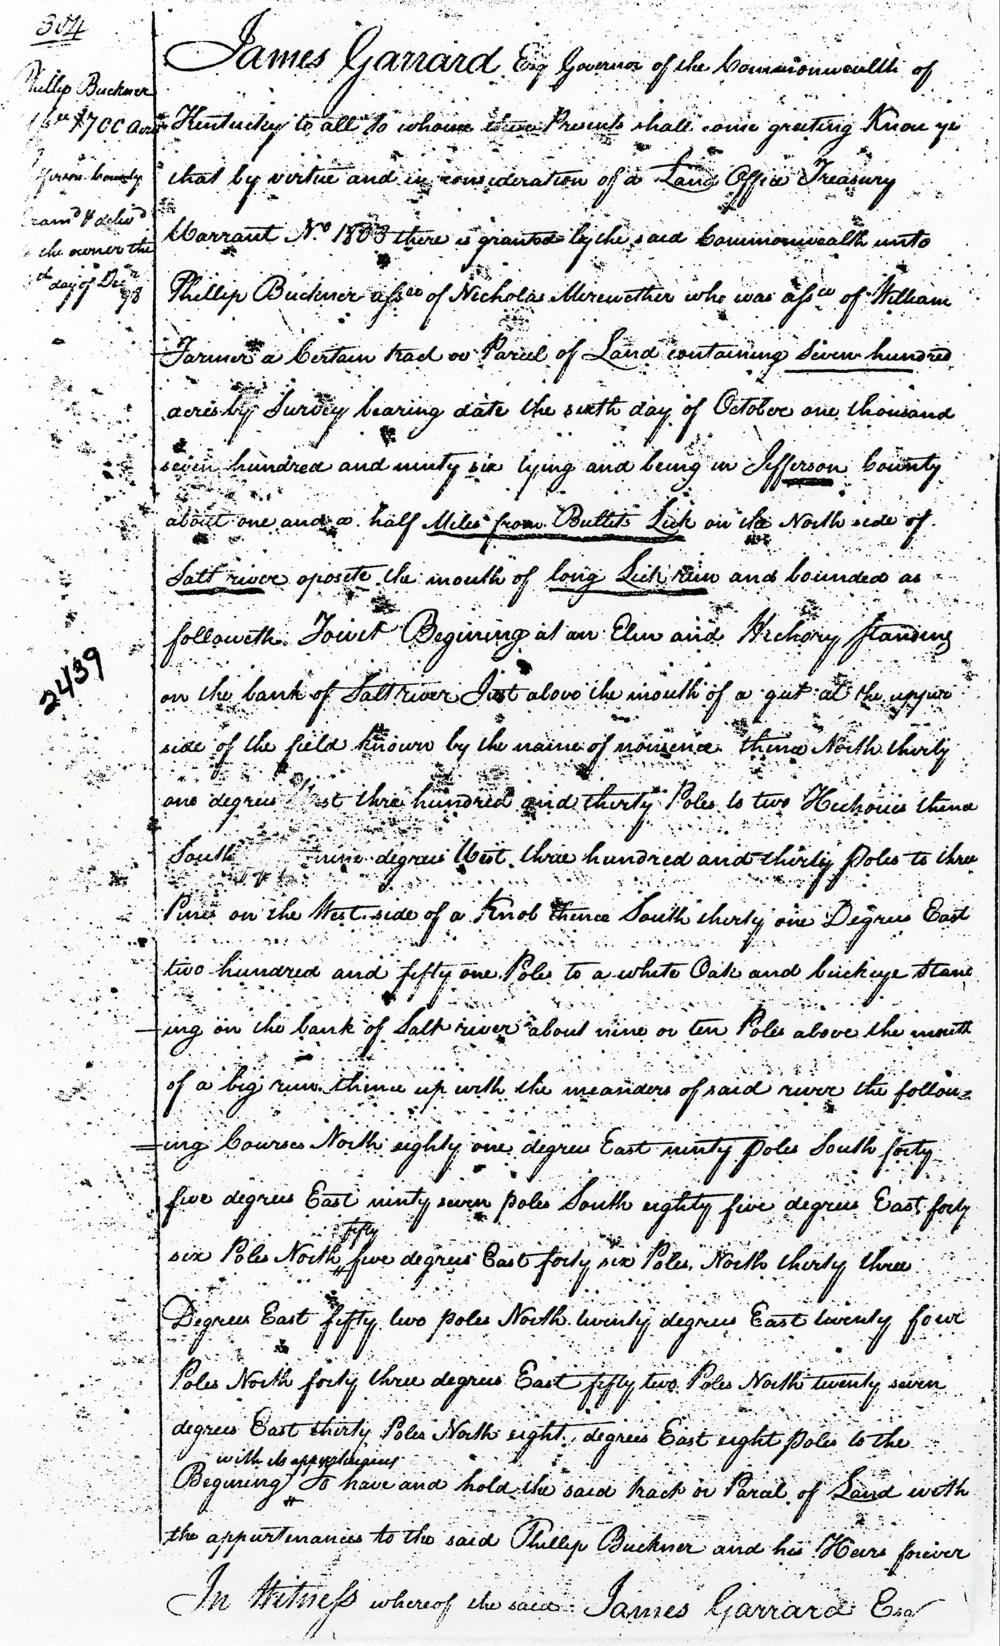 304
Phillip Buckner
700 Acres
County
the owner the
day of Decr
98
2439
James Garrard Esq Governor of the Commonwealth of
Kentucky to all to whom these Presents shall come greeting Know ye
that by virtue and in consideration of a Land Office Treasury
Warrant No. 1803 there is granted by the said Commonwealth unto
Phillip Buckner assee of Nicholas Merewether who was assee of William
Farmer a Certain tract or Parcel of Land containing Seven hundred
acres by Survey bearing date the sixth day of October one thousand
seven hundred and ninty six lying and being in Jefferson County
about one and a half Miles from Bullits Lick on the North side of
Salt river oposite the mouth of long Lick run and bounded as
followeth Towit Begining at an Elm and Hickory standing
on the bank of Salt river Just above the mouth of a gut at the upper
side of the field known by the name of thence North thirty
one degrees West three hundred and thirty Poles to two Hickories thence
South nine degrees West three hundred and thirty poles to three
Pines on the West side of a Knob thence South thirty one Degrees East
two hundred and fifty one Poles to a white Oak and buckeye stand
ing on the bank of Salt river about nine or ten Poles above the mouth
of a big run thence up with the meanders of said river the follow=
ing Courses North eighty one degrees East ninty poles South forty
five degrees East ninty seven poles South eighty five degrees East forty
six Poles North fifty five degrees East forty six Poles North thirty three
Degrees East fifty two poles North twenty degrees East twenty four
Poles North forty three degrees East fifty two Poles North twenty seven
degrees East thirty Poles North eight degrees East eight poles to the
with its appurtenances
Begining To have and hold the said tract or Parcel of Land with
the appurtenances to the said Phillip Buckner and his Heirs forever
In Witness whereof the said James Garrard Esqr